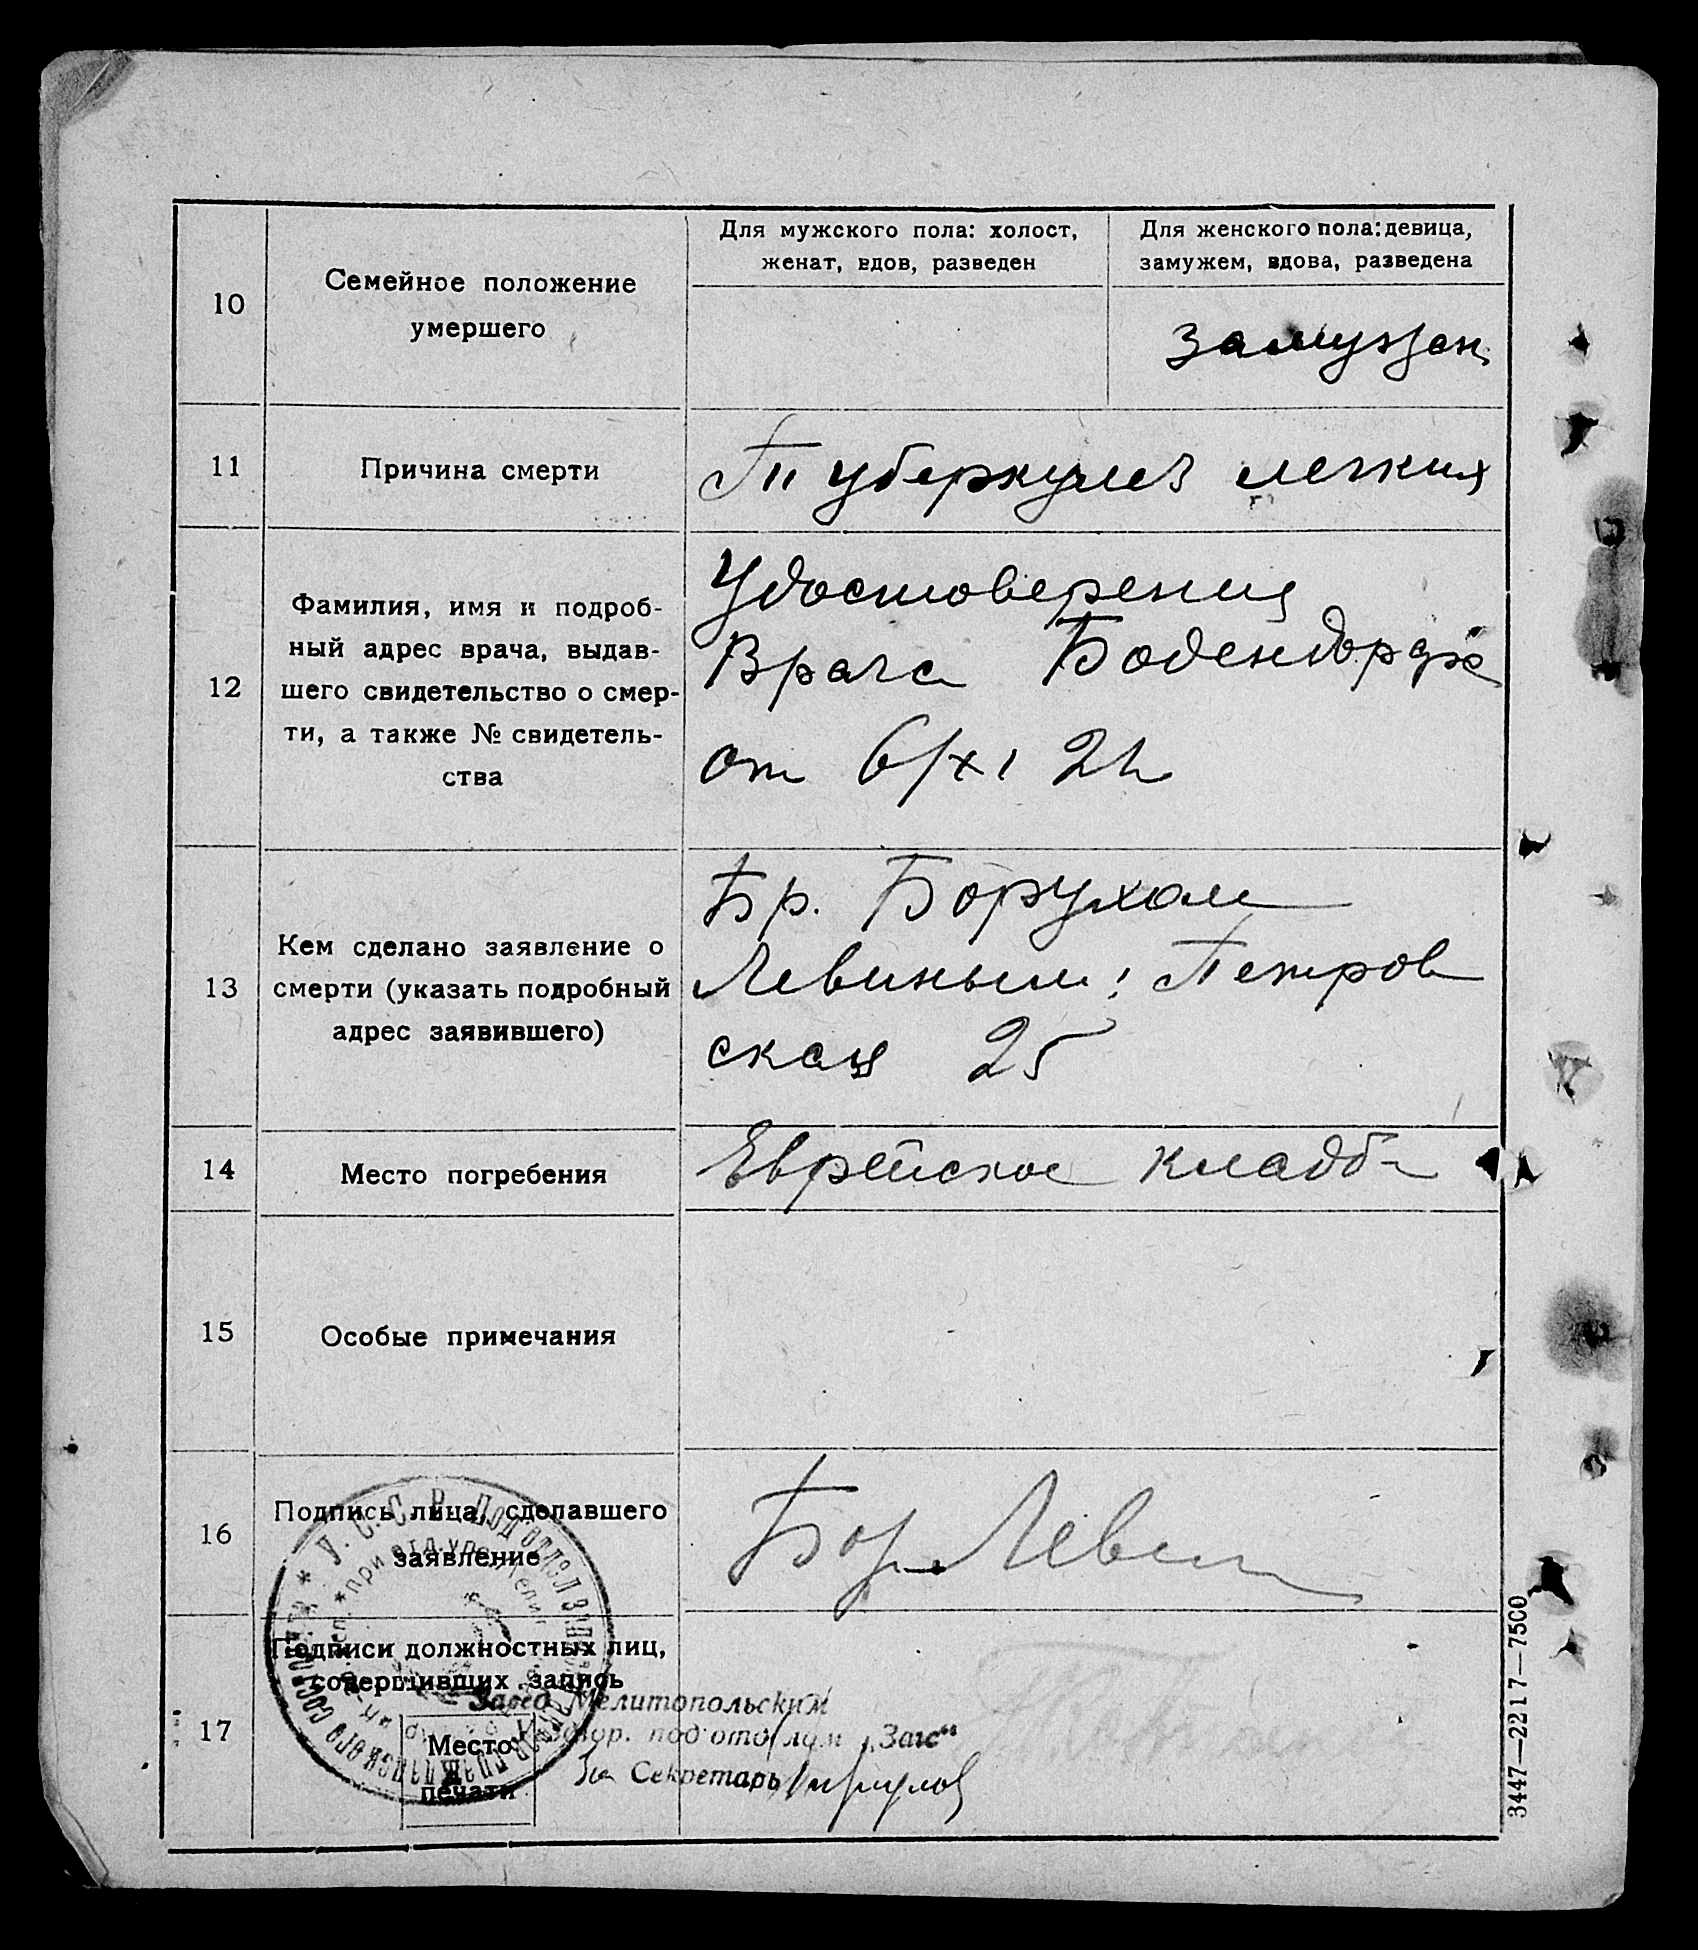 10
Семейное положение
умершего
Для мужского пола: холост,
женат, вдов, разведен
Для женского пола: девица,
замужем, вдова, разведена
замужем
11
Причина смерти
Туберкулез легких
12
Фамилия, имя и подроб-
ный адрес врача, выдав-
шего свидетельство о смер-
ти, а также № свидетель-
ства
Удостоверения
Врача
от 6/XI
13
Кем сделано заявление о
смерти (указать подробный
адрес заявившего)
Бр. Борухом
Левиным; Петров
ская 25
14
Место погребения
Еврейское кладб-
15
Особые примечания
16
Подпись лица, сделавшего
заявление
Бор. Левин
17
Подписи должностных лиц,
совершивших запись
Место
печати
Завед. Мелитопольским
подотделом „Загс“
За Секретарь
У. С. С. Р. Подотдел
3447—2217—7500